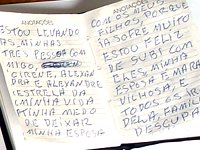 ANOTAÇÕES
ESTOU LEVANDO
AS MINHAS
TRES PESSOA COM
MIGO
CIRENE, ALEXAN
DRA E ALEXANDRE
ESTRELA DA
MINHA VIDA
MINHA MEDO
DE DEIXAR
MINHA ESPOSA
COM OS MEUS
FILHOS, PORQUE
IA SOFRE MUITO
ESTOU FELIZ
DE SUBI COM
ELES, MINHA
ESPOSA E MARA
VILHOSA, E
TODOS OS IR
DELA, FAMILI
DESCUPA